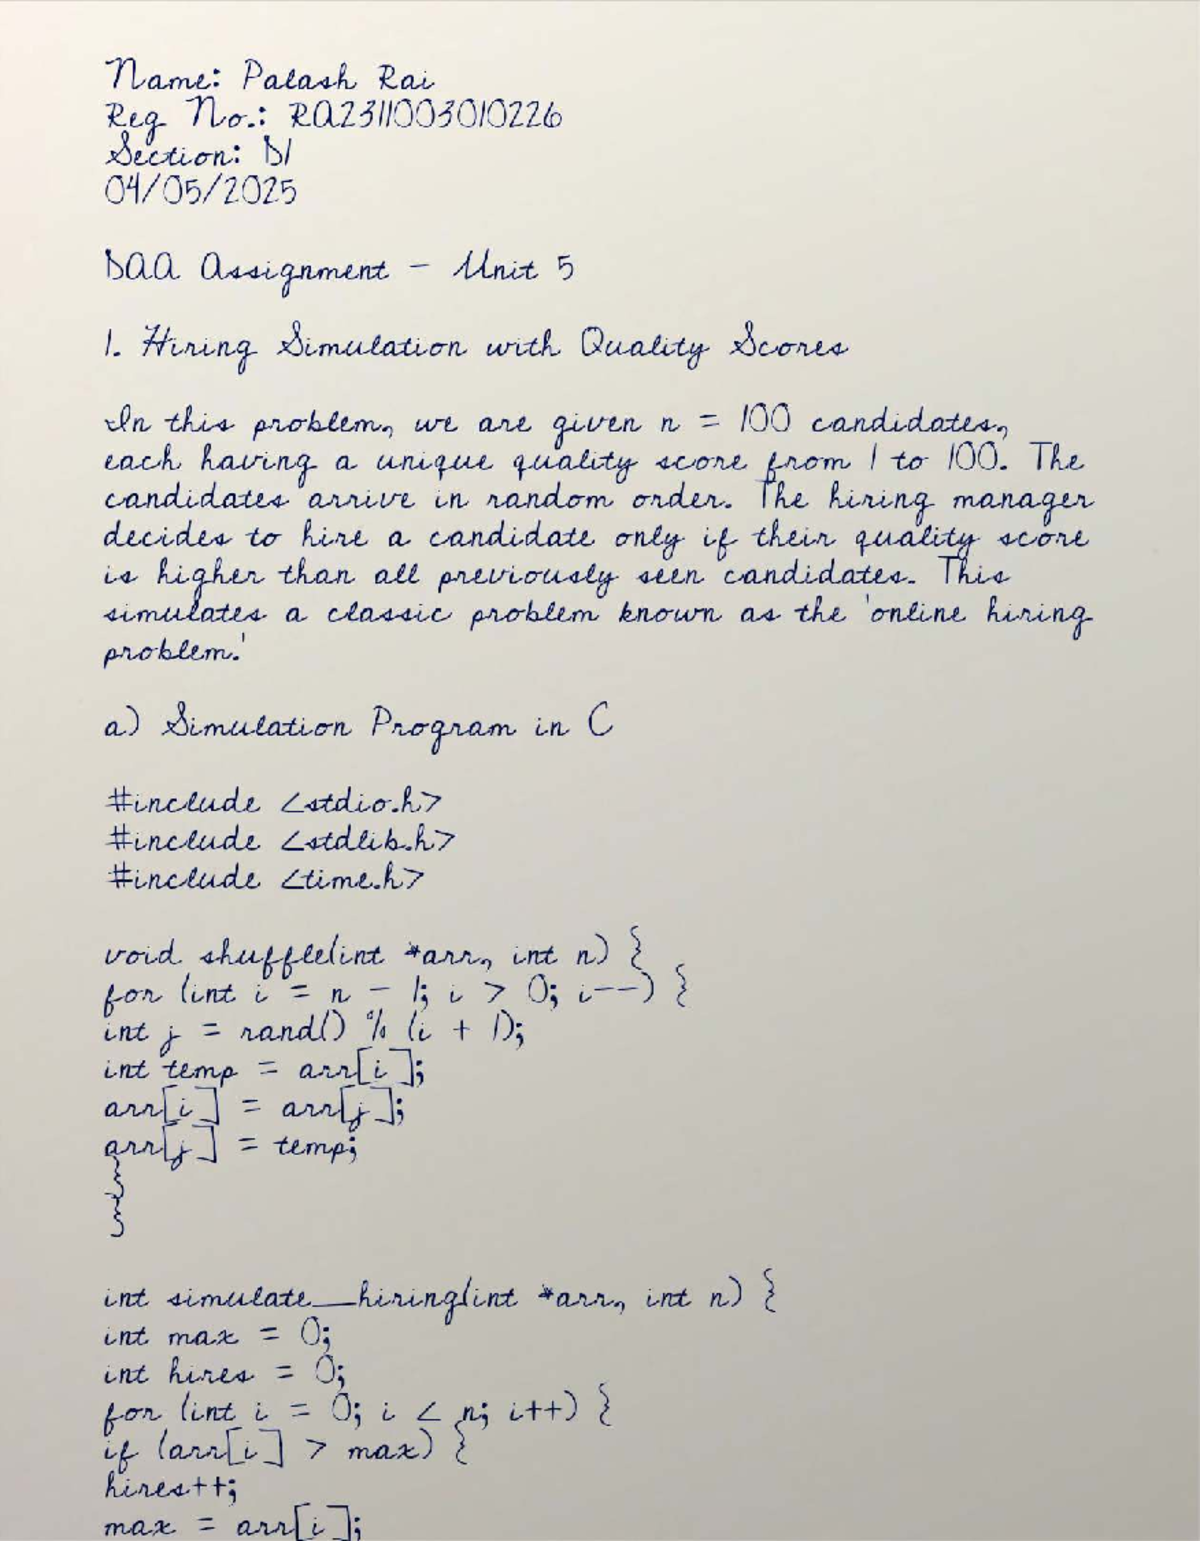 Name: Palash Rai
Reg No.: RA2311003010226
Section: D1
04/05/2025
DAA Assignment - Unit 5
1. Hiring Simulation with Quality Scores
In this problem, we are given n = 100 candidates,
each having a unique quality score from 1 to 100. The
candidates arrive in random order. The hiring manager
decides to hire a candidate only if their quality score
is higher than all previously seen candidates. This
simulates a classic problem known as the 'online hiring
problem.'
a) Simulation Program in C
#include <stdio.h>
#include <stdlib.h>
#include <time.h>
void shuffle(int *arr, int n) {
for (int i = n - 1; i > 0; i--) {
int j = rand() % (i + 1);
int temp = arr[i];
arr[i] = arr[j];
arr[j] = temp;
}
}
int simulate_hiring(int *arr, int n) {
int max = 0;
int hires = 0;
for (int i = 0; i < n; i++) {
if (arr[i] > max) {
hires++;
max = arr[i];